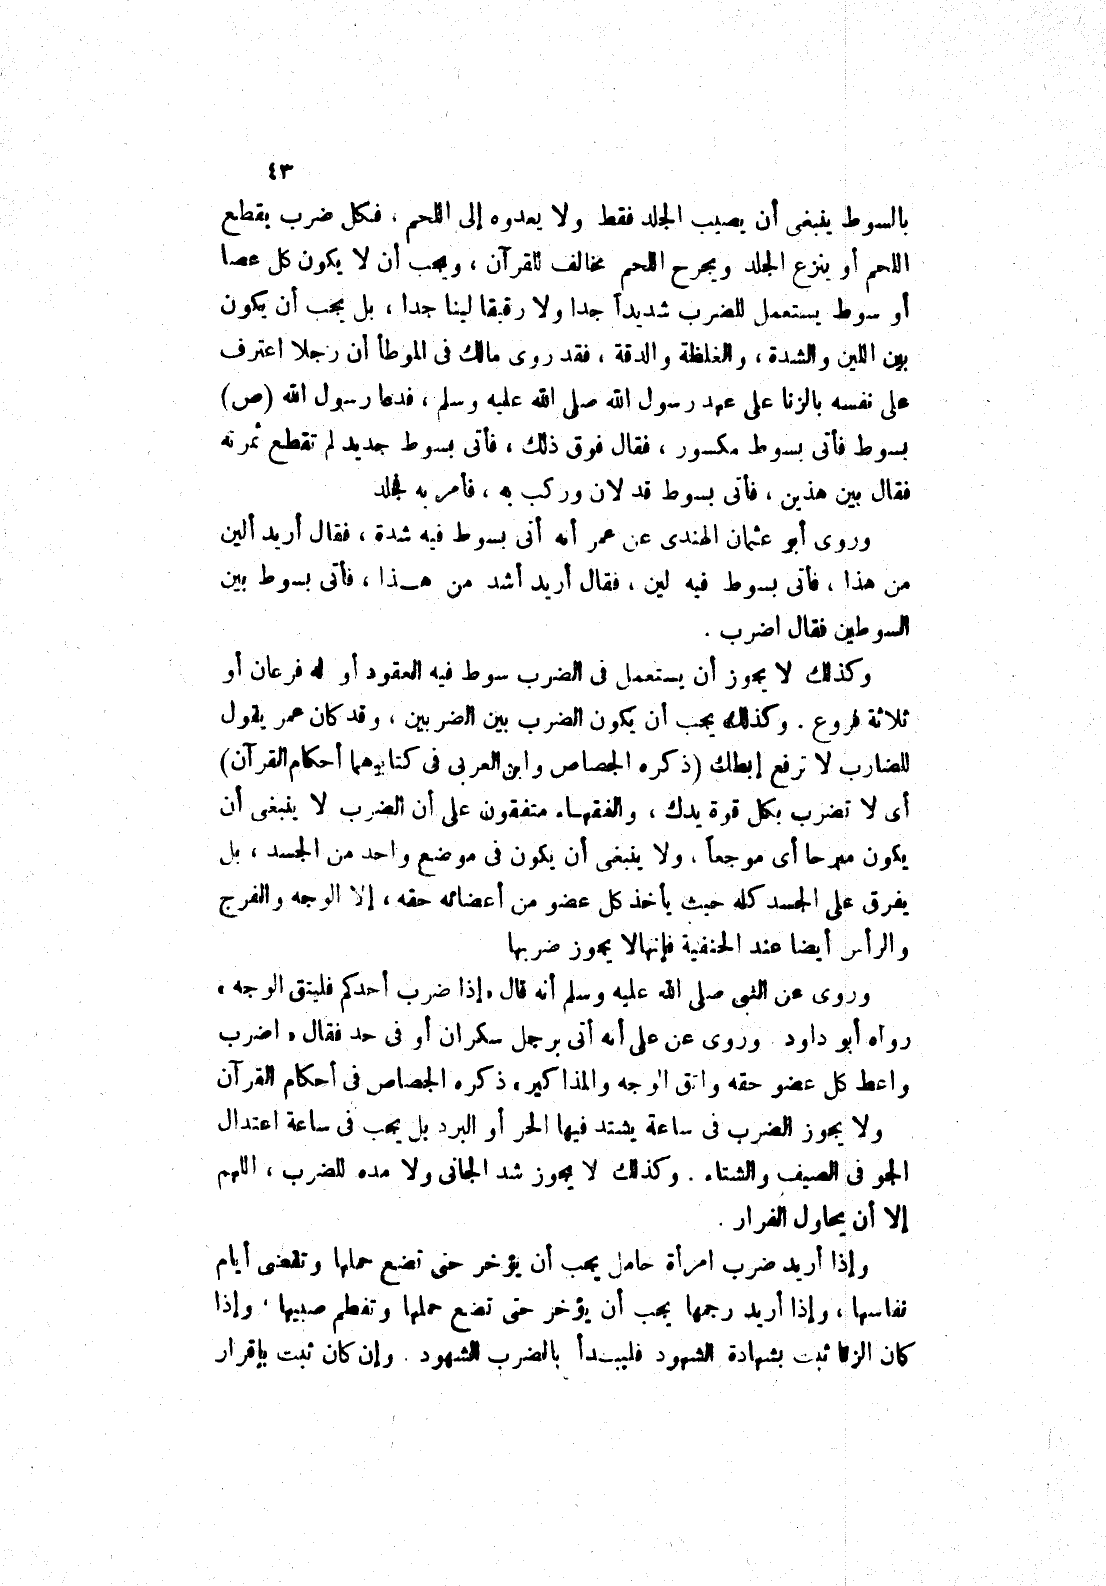 ٤٣
بالسوط ينبغى أن يصيب الجلد فقط ولا يعدوه إلى اللحم ، فكل ضرب يقطع
اللحم أو ينزع الجلد ويجرح اللحم مخالف للقرآن ، ويجب أن لا يكون كل عصا
أو سوط يستعمل للضرب شديداً جدا ولا رقيقا لينا جدا ، بل يجب أن يكون
بين اللين والشدة ، والغلظة والدقة ، فقد روى مالك فى الموطأ أن رجلا اعترف
على نفسه بالزنا على عهد رسول الله صلى الله عليه وسلم ، فدعا رسول الله (ص)
بسوط فأتى بسوط مكسور ، فقال فوق ذلك ، فأتى بسوط جديد لم تقطع ثمرته
فقال بين هذين ، فأتى بسوط قد لان وركب به ، فأمر به فجلد
وروى أبو عثمان الهندى عن عمر أنه أتى بسوط فيه شدة ، فقال أريد ألين
من هذا ، فأتى بسوط فيه لين ، فقال أريد أشد من هـذا ، فأتى بسوط بين
السوطين فقال اضرب .
وكذلك لا يجوز أن يستعمل فى الضرب سوط فيه العقود أو له فرعان أو
ثلاثة فروع . وكذلك يجب أن يكون الضرب بين الضربين ، وقد كان عمر يقول
للضارب لا ترفع إبطك (ذكره الجصاص وابن العربى فى كتابيهما أحكام القرآن)
أى لا تضرب بكل قوة يدك ، والفقهاء متفقون على أن الضرب لا ينبغى أن
يكون مبرحا أى موجعاً . ولا ينبغى أن يكون فى موضع واحد من الجسد ، بل
يفرق على الجسد كله حيث يأخذ كل عضو من أعضائه حقه ، إلا الوجه والفرج
والرأس أيضا عند الحنفية فإنها لا يجوز ضربها
وروى عن النبى صلى الله عليه وسلم أنه قال « إذا ضرب أحدكم فليتق الوجه »
رواه أبو داود . وروى عن على أنه أتى برجل سكران أو فى حد فقال « اضرب
واعط كل عضو حقه واتق الوجه والمذاكير » ذكره الجصاص فى أحكام القرآن
ولا يجوز الضرب فى ساعة يشتد فيها الحر أو البرد بل يجب فى ساعة اعتدال
الجو فى الصيف والشتاء . وكذلك لا يجوز شد الجانى ولا مده للضرب ، اللهم
إلا أن يحاول الفرار .
وإذا أريد ضرب امرأة حامل يجب أن يؤخر حتى تضع حملها وتقضى أيام
نفاسها ، وإذا أريد رجمها يجب أن يؤخر حتى تضع حملها وتفطم صبيها ، وإذا
كان الزنا ثبت بشهادة الشهود فليبـدأ بالضرب الشهود . وإن كان ثبت بإقرار